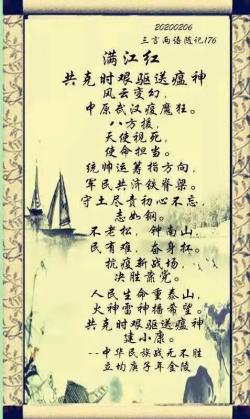 20200206
三言两语随记176
满江红
共克时艰驱送瘟神
风云变幻，
中原武汉疫魔狂。
八方援，
天使视死，
使命担当。
统帅运筹指方向，
军民共济铁脊梁。
守土尽责初心不忘，
志如钢。
不老松，钟南山，
民有难，奋身杠。
抗疫新战场，
决胜萧党。
人民生命重泰山，
火神雷神播希望。
共克时艰驱送瘟神
建小康。
--中华民族战无不胜
立均庚子年金陵